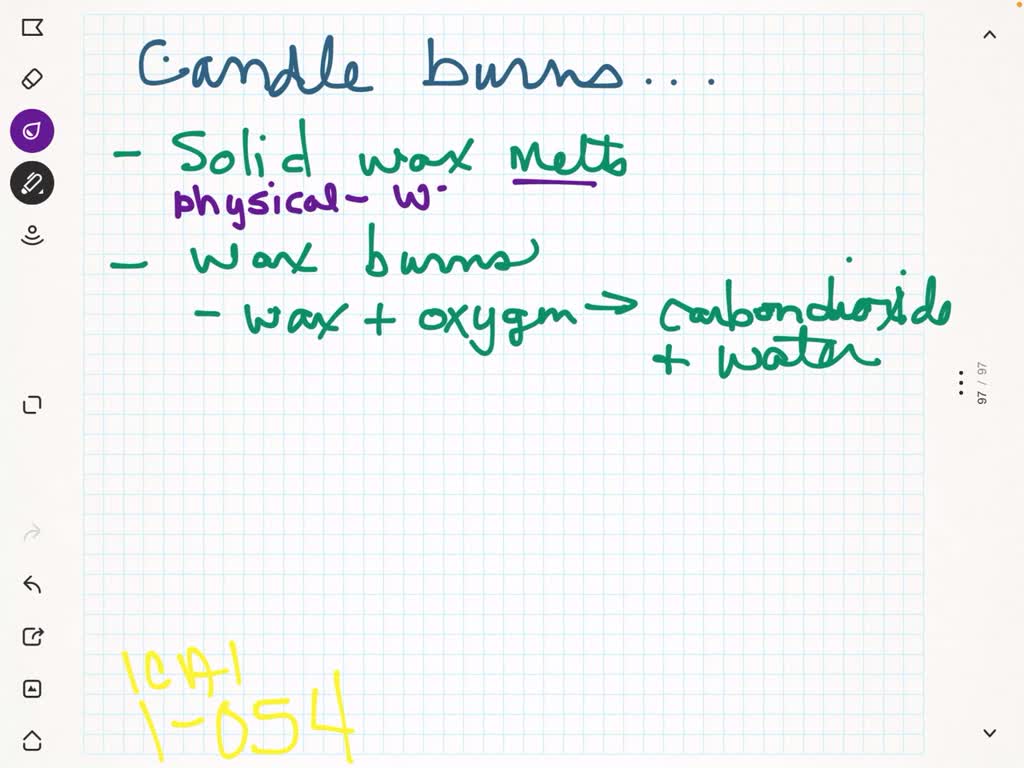 Candle burns...
- Solid wax melts
physical - w
- wax burns
- wax + oxygen → carbondioxide
+ water
97 / 97
1-054